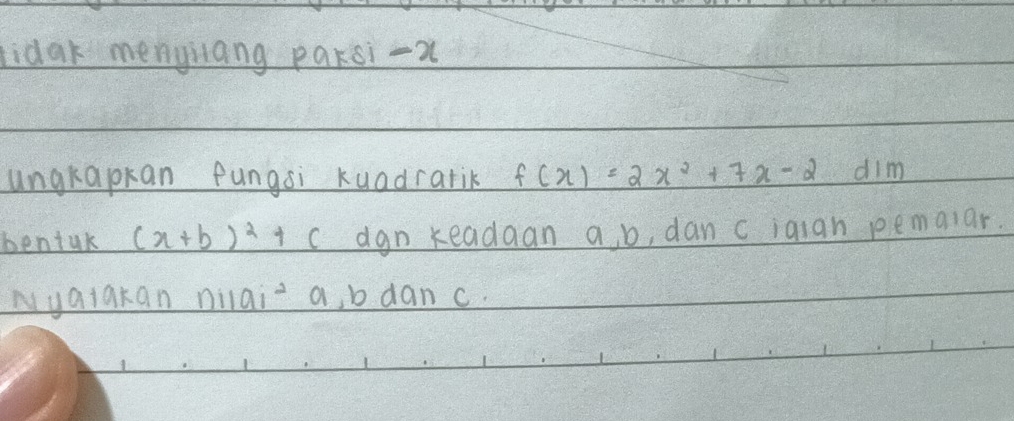 tidak menyilang paksi -x
ungkapkan fungsi kuadratik f(x) = 2x² + 7x - 2 dlm
bentuk (x+b)² + c dgn keadaan a, b, dan c ialah pemalar.
Nyatakan nilai² a, b dan c.